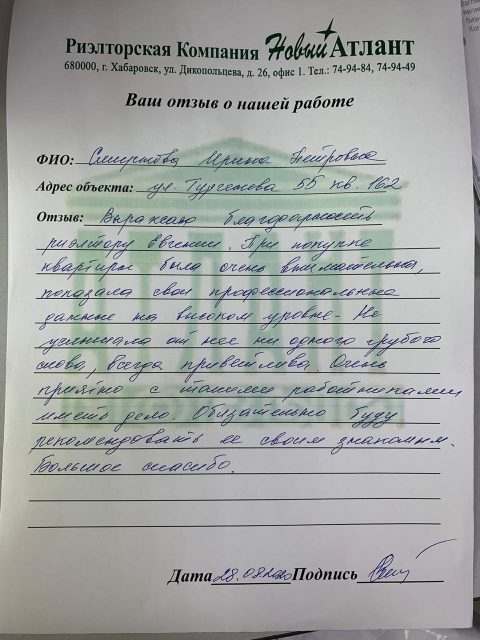 Риэлторская Компания Новый Атлант
680000, г. Хабаровск, ул. Дикопольцева, д. 26, офис 1. Тел.: 74-94-84, 74-94-49
Ваш отзыв о нашей работе
ФИО: Ирина Петровна
Адрес объекта: ул. Тургенева 55 кв. 162
Отзыв: Выражаю благодарность
риэлтору Евгении. При покупке
квартиры была очень внимательна,
показала свои профессиональные
данные на высоком уровне. Не
услышала от нее ни одного грубого
слова, всегда приветлива. Очень
приятно с такими работниками
иметь дело. Обязательно буду
рекомендовать ее своим знакомым.
Большое спасибо.
Дата 28.08.2020 Подпись